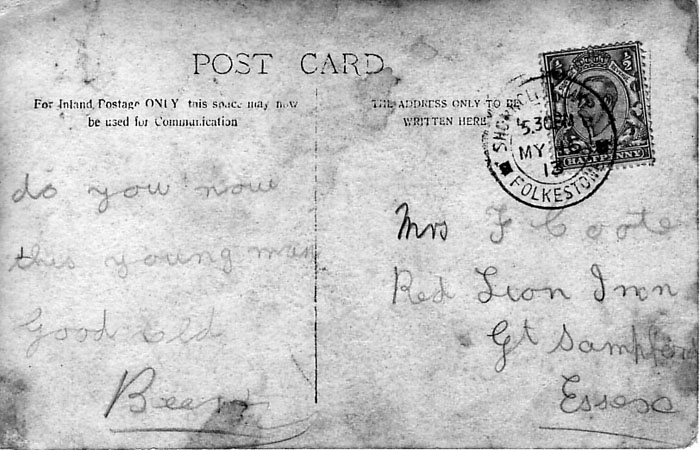 POST CARD
For Inland Postage ONLY this space may now
be used for Communication
THE ADDRESS ONLY TO BE
WRITTEN HERE
SHORNCLIFFE
5.30 PM
MY 15
13
FOLKESTONE
HALFPENNY
do you now
this young man
Good old
Mrs F Coote
Red Lion Inn
Gt Sampford
Essex